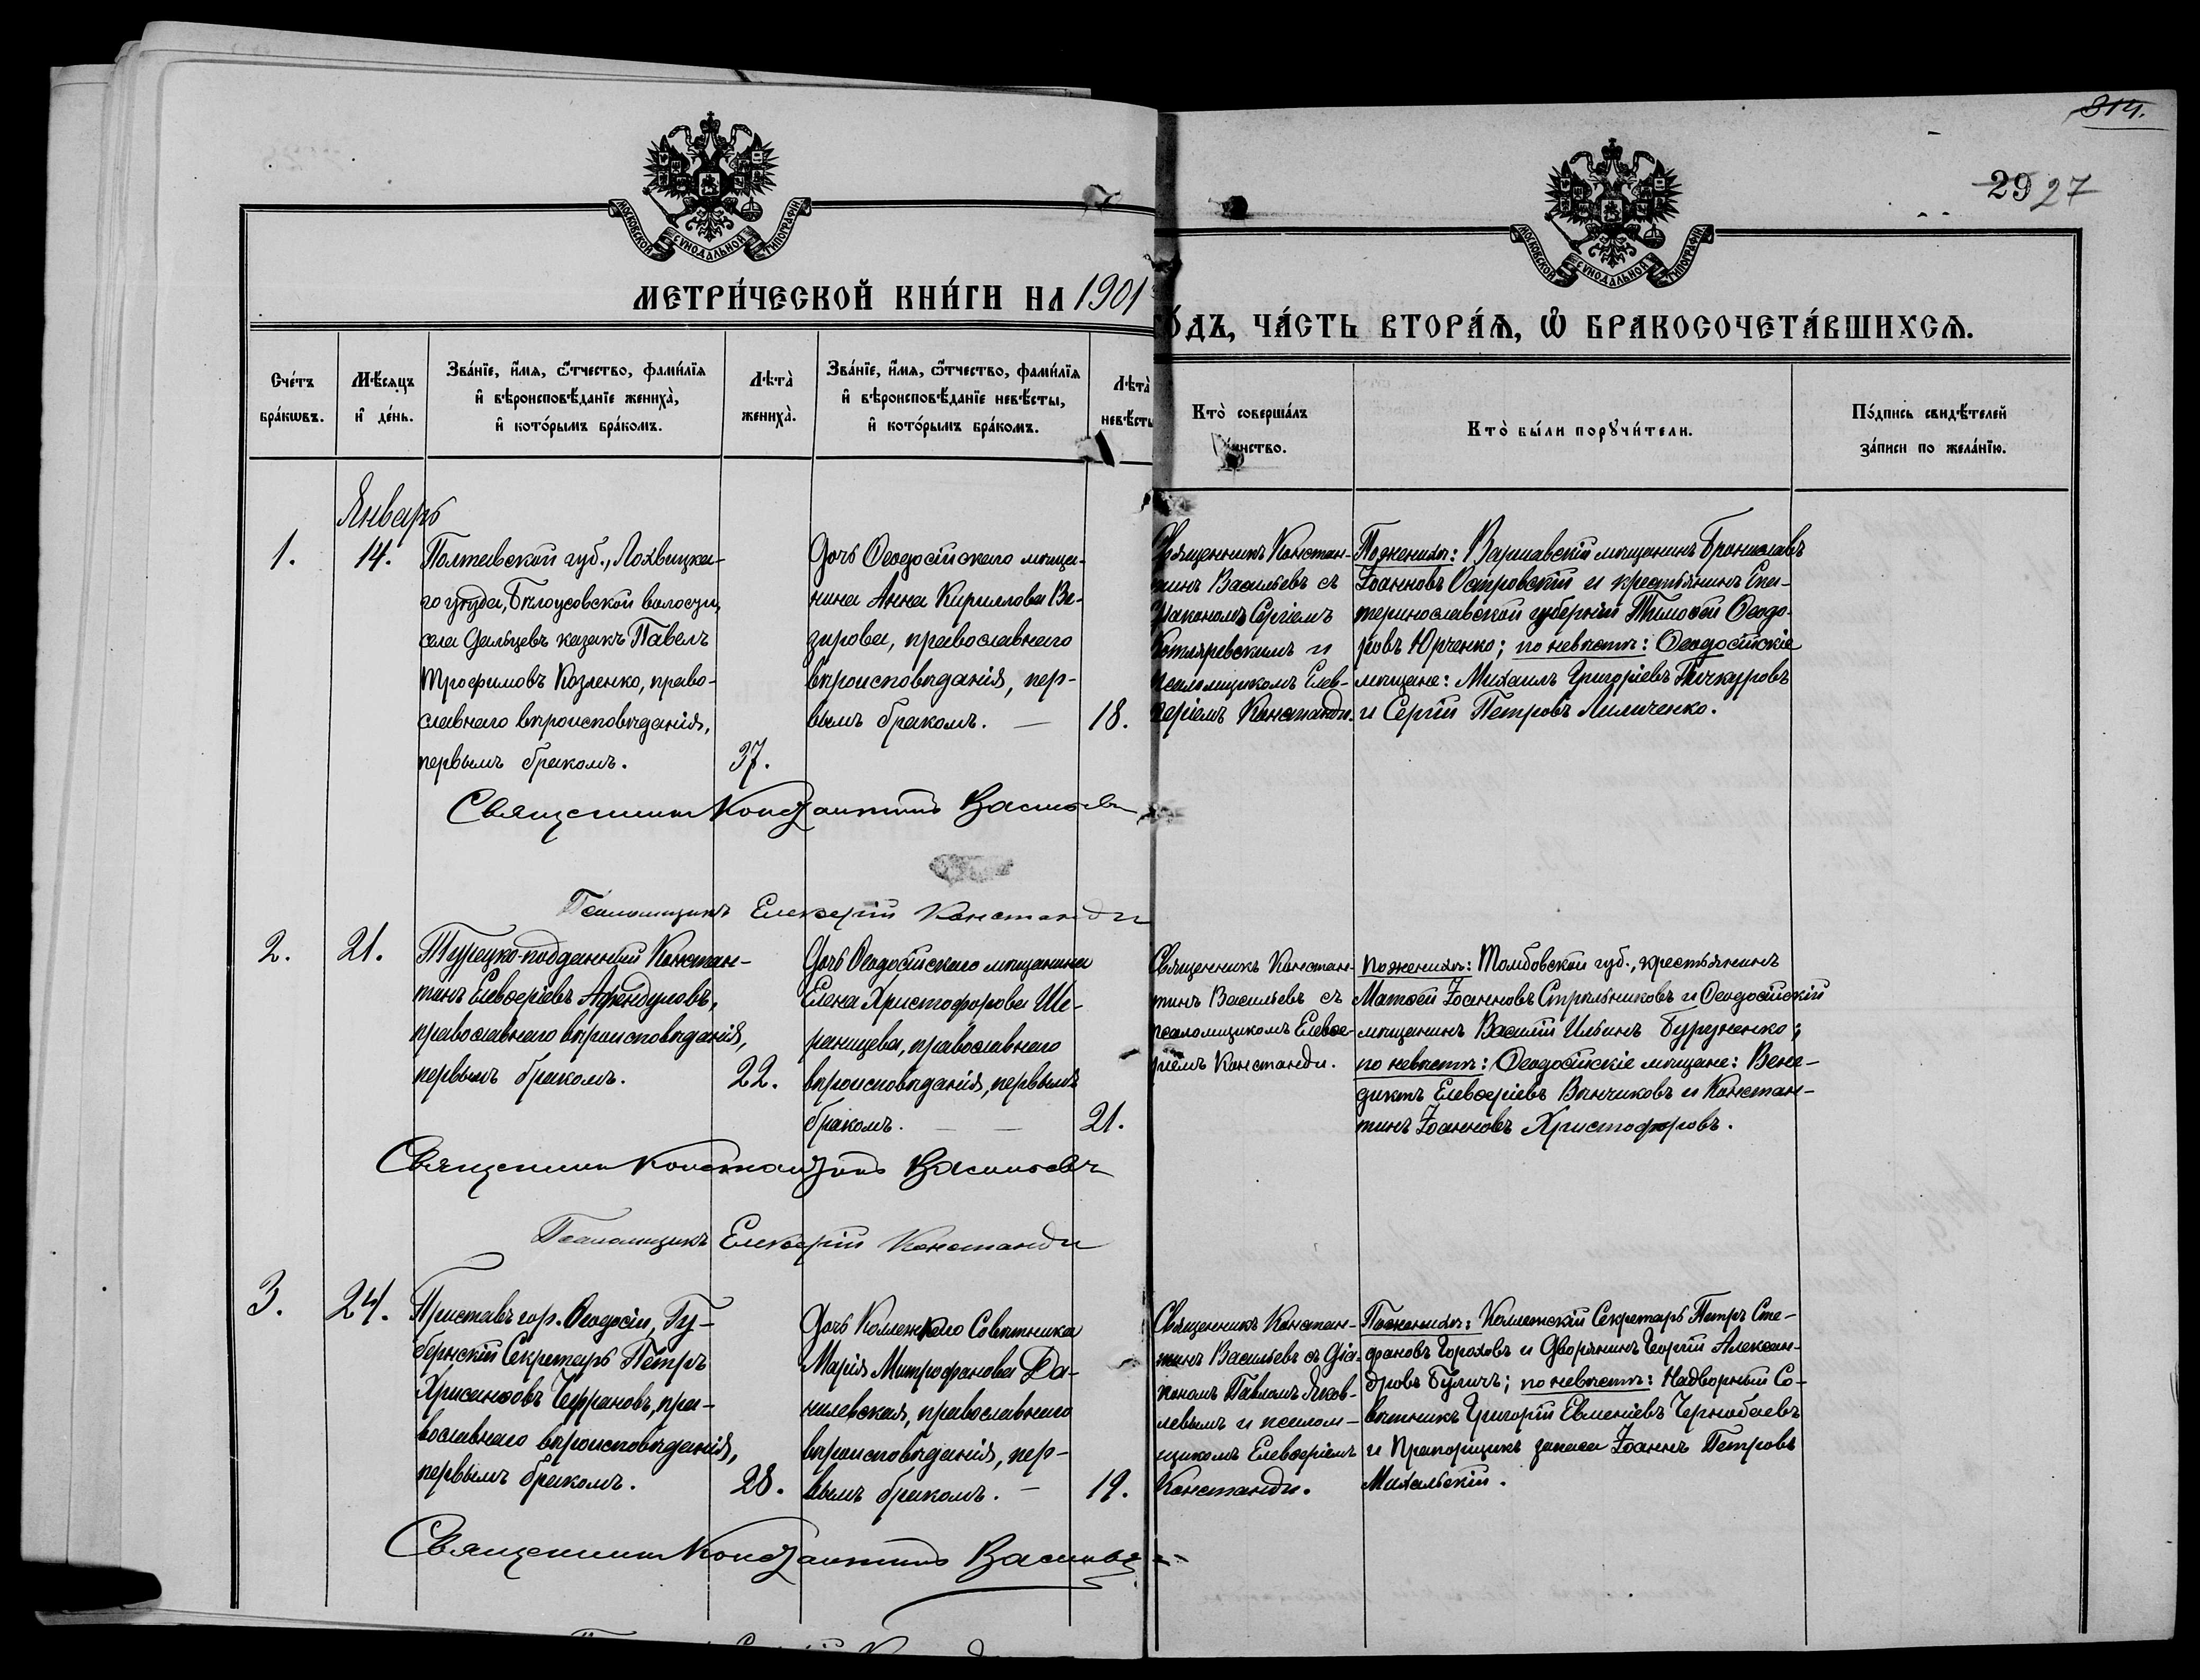 314.
29 27
МОСКОВСКОЙ СУНОДАЛЬНОЙ ТИПОГРАФІИ
МОСКОВСКОЙ СУНОДАЛЬНОЙ ТИПОГРАФІИ
МЕТРИ́ЧЕСКОЙ КНИ́ГИ НА 1901
О́ДЪ, ЧА́СТЬ ВТОРА́Ѧ, Ѡ҆ БРАКОСОЧЕТА́ВШИХСѦ.
Сче́тъ
бра́кѡвъ.
Мѣ́сяцъ
и҆ де́нь.
Зва́нїе, и҆́мѧ, ѻ҆́тчество, фами́лїѧ
и҆ вѣроисповѣ́данїе жениха̀,
и҆ кото́рымъ бра́комъ.
Лѣта̀
жениха̀.
Зва́нїе, и҆́мѧ, ѻ҆́тчество, фами́лїѧ
и҆ вѣроисповѣ́данїе невѣ́сты,
и҆ кото́рымъ бра́комъ.
Лѣта̀
невѣ́сты
Кто̀ соверша́лъ
инство.
Кто̀ бы́ли порꙋчи́тели.
По́дпись свидѣ́телей
за́писи по жела́нїю.
Январь
1.
14.
Полтавской губ., Лохвицка-
го уѣзда, Бѣлоусовской волости,
села Дальцевъ казакъ Павелъ
Трофимовъ Козленко, право-
славнаго вѣроисповѣданія,
первымъ бракомъ.
37.
Дочь Ѳеодосійскаго мѣща-
нина Анна Кириллова Ве-
зирова, православнаго
вѣроисповѣданія, пер-
вымъ бракомъ. —
18.
Священникъ Констан-
тинъ Васильевъ съ
Діакономъ Сергіемъ
Котляревскимъ и
псаломщикомъ Елев-
ѳеріемъ Константи.
По женихѣ: Варшавскій мѣщанинъ Брониславъ
Іоанновъ Островскій и крестьянинъ Ека-
теринославской губерніи Тимоѳей Ѳеодо-
ровъ Юрченко; по невѣстѣ: Ѳеодосійскіе
мѣщане: Михаилъ Григоріевъ Пичкуровъ
и Сергій Петровъ Лимченко.
Священникъ Константинъ Васильевъ
Псаломщикъ Елевѳерій Константи
2.
21.
Турецко-подданный Констан-
тинъ Елевѳеріевъ Афендуловъ,
православнаго вѣроисповѣданія,
первымъ бракомъ.
22.
Дочь Ѳеодосійскаго мѣщанина
Елена Христофорова Ше-
ранцева, православнаго
вѣроисповѣданія, первымъ
бракомъ. — —
21.
Священникъ Констан-
тинъ Васильевъ съ
псаломщикомъ Елевѳе-
ріемъ Константи.
По женихѣ: Томбовской губ., крестьянинъ
Матѳей Іоанновъ Стрѣльниковъ и Ѳеодосійскій
мѣщанинъ Василій Ильинъ Бурученко;
по невѣстѣ: Ѳеодосійскіе мѣщане: Вене-
диктъ Елевѳеріевъ Вѣнчиковъ и Констан-
тинъ Іоанновъ Христофоровъ.
Священникъ Константинъ Васильевъ
Псаломщикъ Елевѳерій Константи
3.
24.
Приставъ гор. Ѳеодосіи, Гу-
бернскій Секретарь Петръ
Хрисанѳовъ Чефрановъ, пра-
вославнаго вѣроисповѣданія,
первымъ бракомъ.
28.
Дочь Коллежскаго Совѣтника
Марія Митрофанова Да-
нилевская, православнаго
вѣроисповѣданія, пер-
вымъ бракомъ. —
19.
Священникъ Констан-
тинъ Васильевъ съ Діа-
кономъ Павломъ Яков-
левымъ и псалом-
щикомъ Елевѳеріемъ
Константи.
По женихѣ: Коллежскій Секретарь Петръ Сте-
фановъ Гороховъ и Дворянинъ Георгій Алексан-
дровъ Буличъ; по невѣстѣ: Надворный Со-
вѣтникъ Григорій Евменіевъ Чернобаевъ
и Прапорщикъ запаса Іоаннъ Петровъ
Михальскій.
Священникъ Константинъ Васильевъ